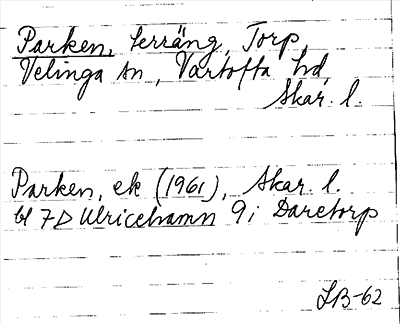 Parken, terräng, Torp,
Velinga sn, Vartofta hd,
Skar. l.
Parken, ek (1961), Skar. l.
bl 7D Ulricehamn 9i Daretorp
LB-62